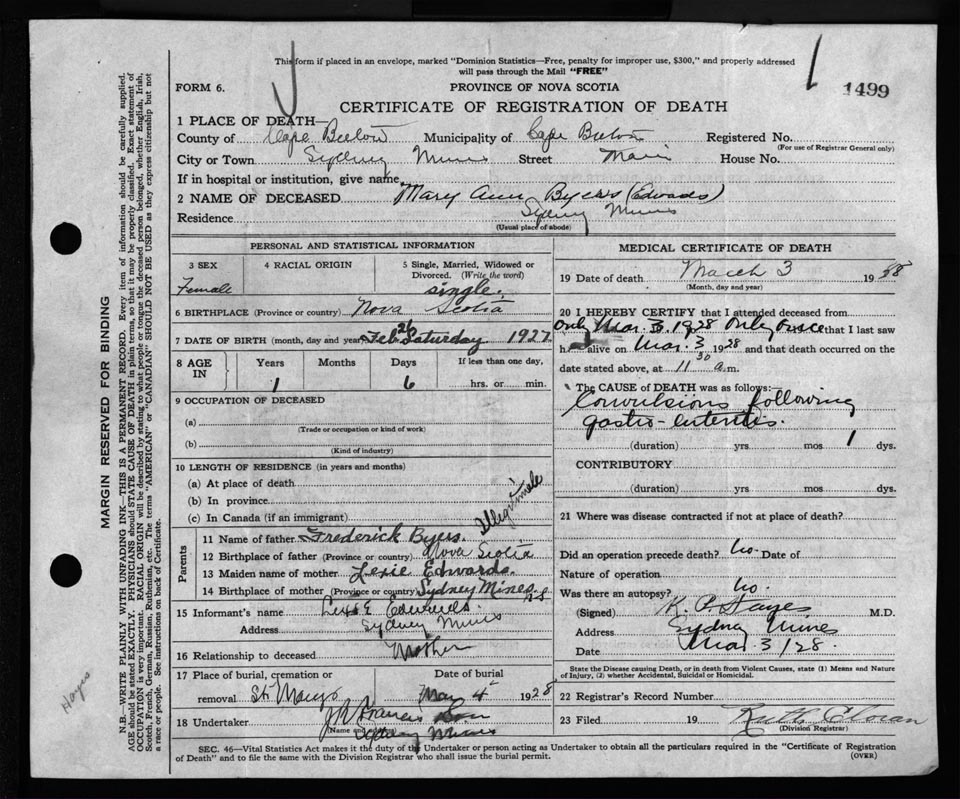 This form if placed in an envelope, marked "Dominion Statistics—Free, penalty for improper use, $300," and properly addressed
will pass through the Mail "FREE"
FORM 6.
PROVINCE OF NOVA SCOTIA
1499
CERTIFICATE OF REGISTRATION OF DEATH
1 PLACE OF DEATH—
County of Cape Breton Municipality of Cape Breton Registered No.
(For use of Registrar General only)
City or Town Sydney Mines Street Main House No.
If in hospital or institution, give name
2 NAME OF DECEASED Mary Ann Byers (Edwards)
Residence Sydney Mines
(Usual place of abode)
PERSONAL AND STATISTICAL INFORMATION
3 SEX
Female
4 RACIAL ORIGIN
5 Single, Married, Widowed or
Divorced. (Write the word)
single.
6 BIRTHPLACE (Province or country) Nova Scotia
7 DATE OF BIRTH (month, day and year) Feb 26 Saturday 1927
8 AGE
IN
Years
1
Months
Days
6
If less than one day,
hrs. or min.
9 OCCUPATION OF DECEASED
(a)
(Trade or occupation or kind of work)
(b)
(Kind of industry)
10 LENGTH OF RESIDENCE (in years and months)
(a) At place of death
(b) In province
(c) In Canada (if an immigrant)
Illegitimate
Parents
11 Name of father Frederick Byers.
12 Birthplace of father (Province or country) Nova Scotia
13 Maiden name of mother Lexie Edwards.
14 Birthplace of mother (Province or country) Sydney Mines N.S
15 Informant's name Edwards.
Address Sydney Mines
16 Relationship to deceased Mother
17 Place of burial, cremation or
removal St Marys
Date of burial
Mar 4 1928
18 Undertaker J R Francis Son
(Name and address)
Sydney Mines
MEDICAL CERTIFICATE OF DEATH
19 Date of death March 3 1928
(Month, day and year)
20 I HEREBY CERTIFY that I attended deceased from
only Mar. 3. 1928 Only once that I last saw
h alive on Mar. 3 1928 and that death occurred on the
date stated above, at 11 30 a.m.
The CAUSE OF DEATH was as follows:—
Convulsions following
gastro-enteritis.
(duration) yrs mos 1 dys.
CONTRIBUTORY
(duration) yrs. mos. dys.
21 Where was disease contracted if not at place of death?
Did an operation precede death? No. Date of
Nature of operation
Was there an autopsy? No.
(Signed) K. P. Hayes M.D.
Address Sydney Mines
Date Mar. 3/28.
State the Disease causing Death, or in death from Violent Causes, state (1) Means and Nature
of Injury, (2) whether Accidental, Suicidal or Homicidal.
22 Registrar's Record Number
23 Filed 19 Ruth
(Division Registrar)
SEC. 46—Vital Statistics Act makes it the duty of the Undertaker or person acting as Undertaker to obtain all the particulars required in the "Certificate of Registration
of Death" and to file the same with the Division Registrar who shall issue the burial permit.
(OVER)
MARGIN RESERVED FOR BINDING
N.B.—WRITE PLAINLY WITH UNFADING INK—THIS IS A PERMANENT RECORD. Every item of information should be carefully supplied.
AGE should be stated EXACTLY. PHYSICIANS should STATE CAUSE OF DEATH in plain terms, so that it may be properly classified. Exact statement of
OCCUPATION is very important. RACIAL ORIGIN will be described by stating to what people or tongue the deceased person belonged, whether English, Irish,
Scotch, French, German, Russian, Ruthenian, etc. The terms "AMERICAN" or "CANADIAN" SHOULD NOT BE USED as they express citizenship but not
a race or people. See instructions on back of Certificate.
Hayes